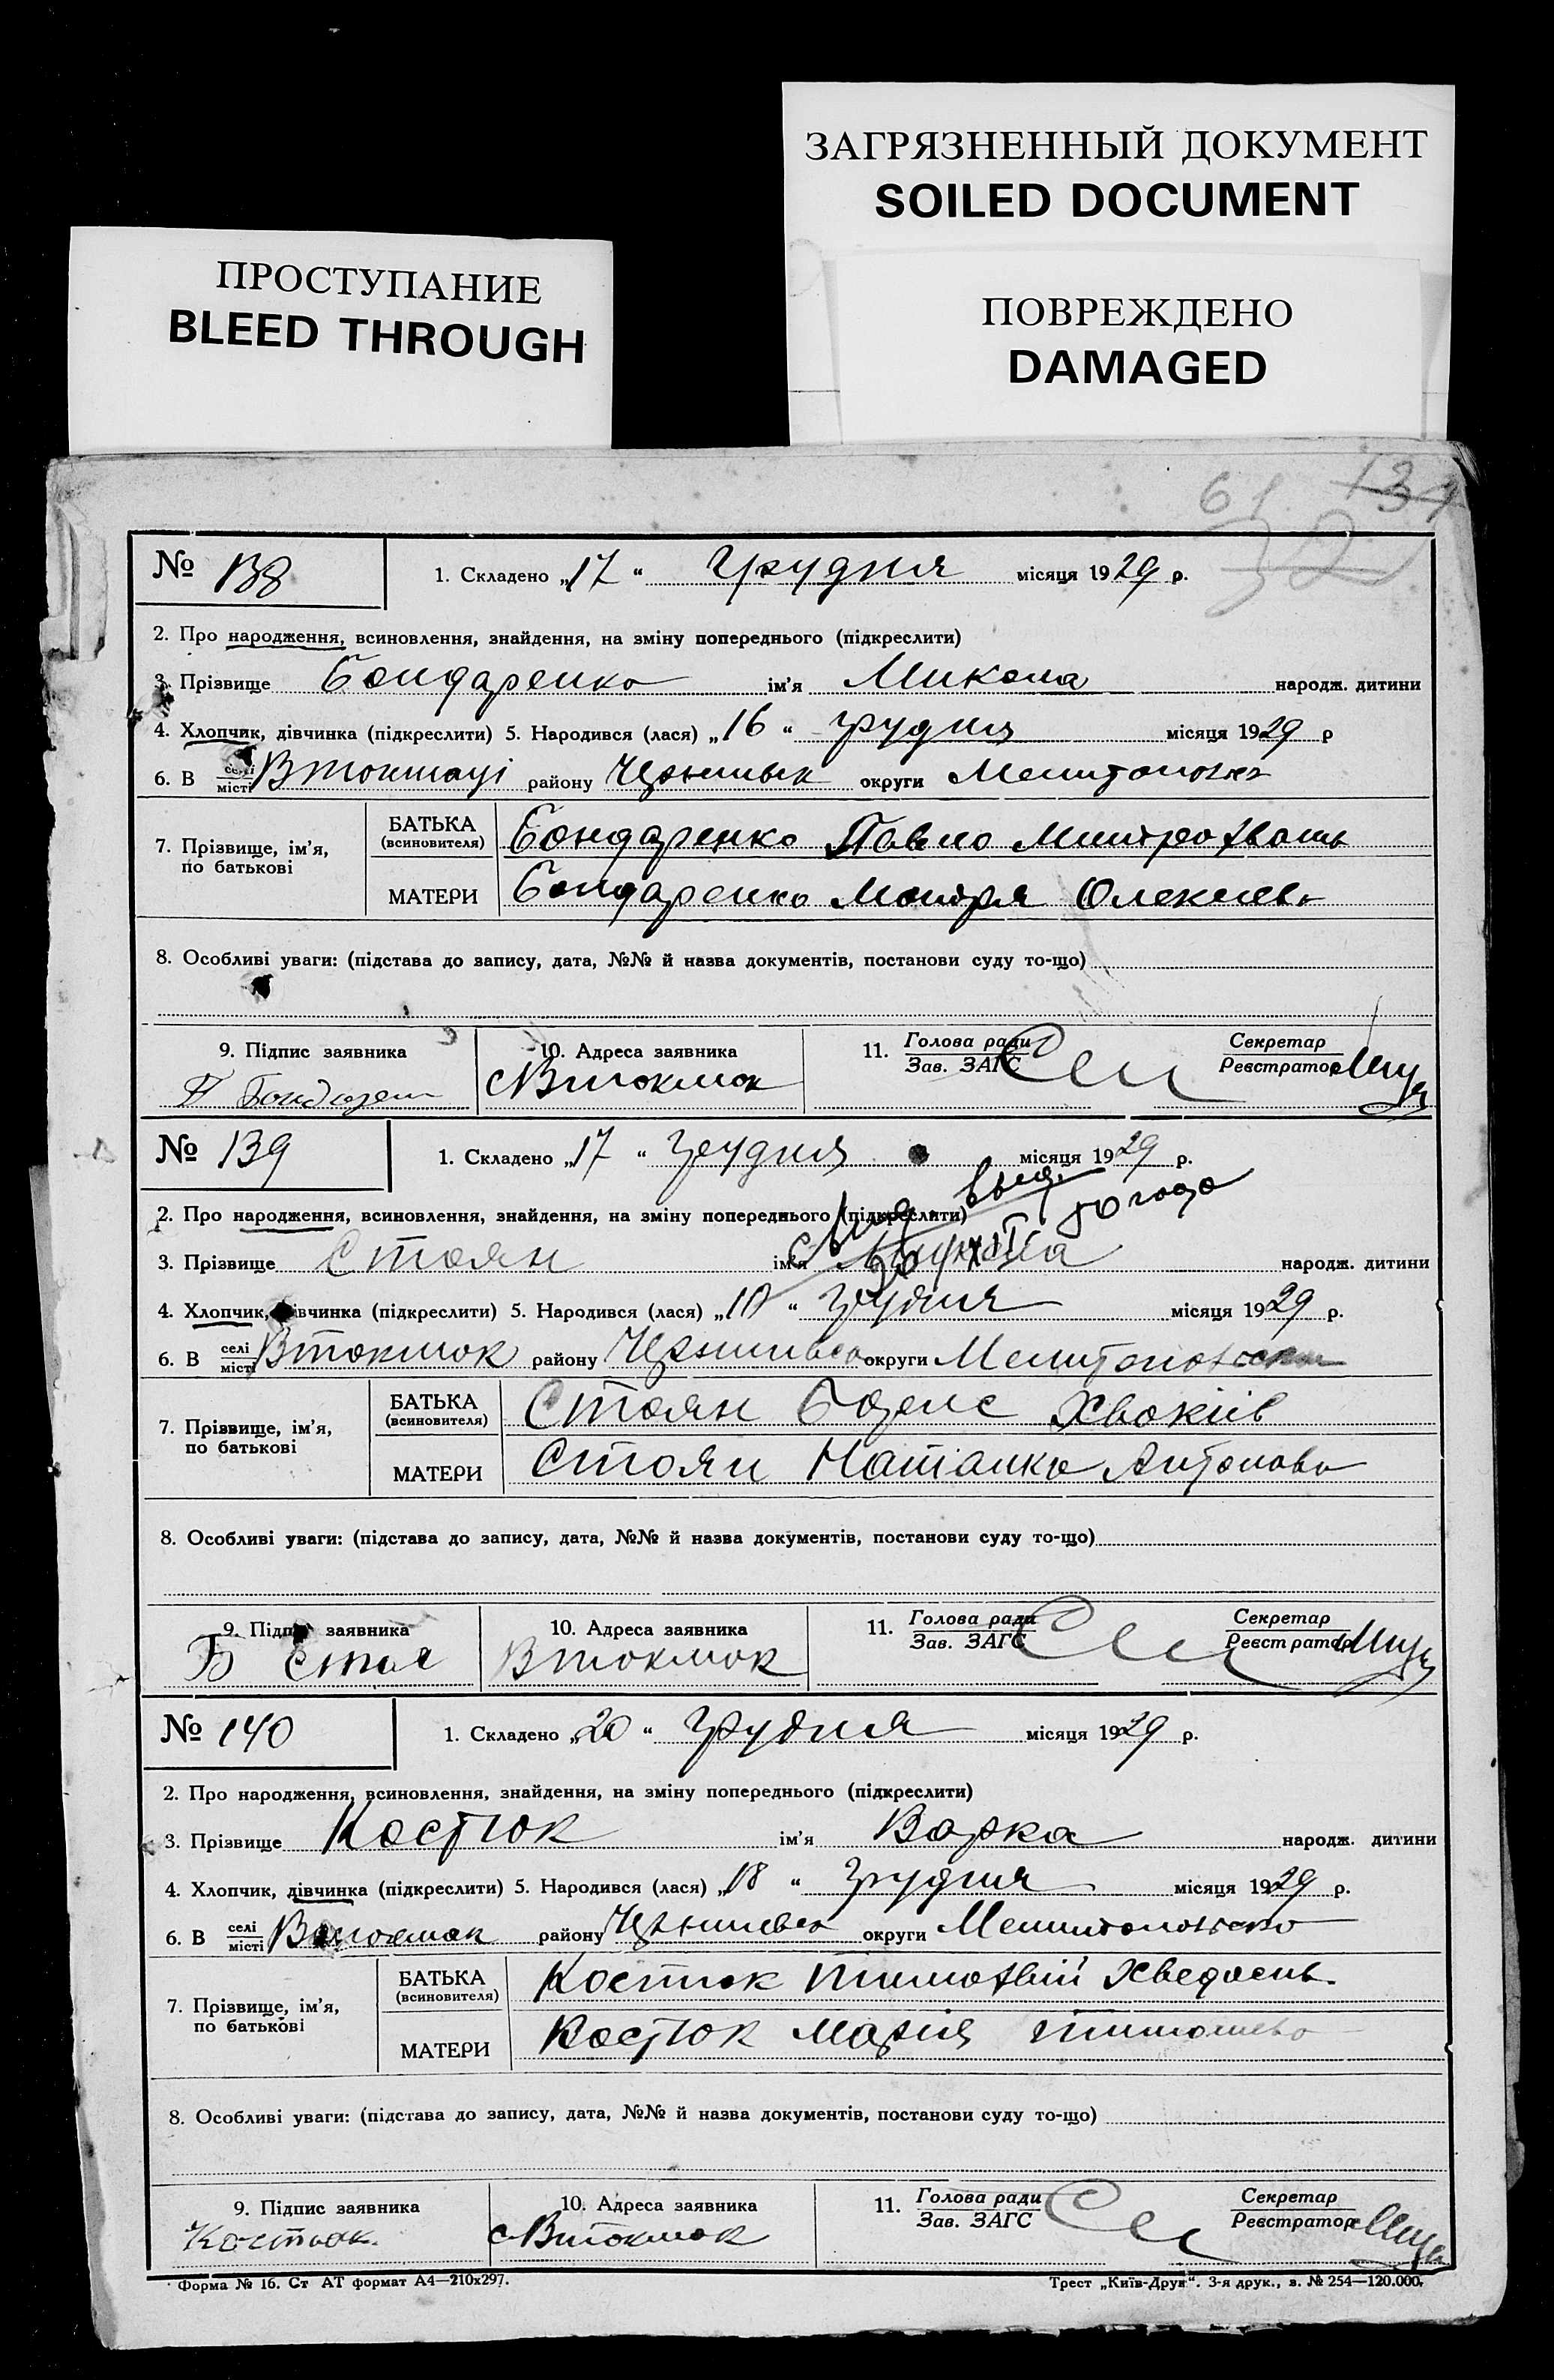 ЗАГРЯЗНЕННЫЙ ДОКУМЕНТ
SOILED DOCUMENT
ПРОСТУПАНИЕ
BLEED THROUGH
ПОВРЕЖДЕНО
DAMAGED
61 131
32
№ 138 1. Складено „17“ грудня місяця 1929 р.
2. Про народження, всиновлення, знайдення, на зміну попереднього (підкреслити)
3. Прізвище Бондаренко ім'я Микола народж. дитини
4. Хлопчик, дівчинка (підкреслити) 5. Народився (лася) „16“ грудня місяця 1929 р
6. В селі місті Втокмаці району округи
7. Прізвище, ім'я, по батькові
БАТЬКА (всиновителя) Бондаренко Павло Митрофань
МАТЕРИ Бондаренко Мотря Олексіев
8. Особливі уваги: (підстава до запису, дата, №№ й назва документів, постанови суду то-що)
9. Підпис заявника 10. Адреса заявника 11. Голова ради Зав. ЗАГС Секретар Реєстратор
П Бондарен с Втокмак
№ 139 1. Складено „17“ грудня місяця 1929 р.
2. Про народження, всиновлення, знайдення, на зміну попереднього (підкреслити)
50 года
3. Прізвище Стоян ім'я Микола народж. дитини
4. Хлопчик, дівчинка (підкреслити) 5. Народився (лася) „10“ грудня місяця 1929 р.
6. В селі місті Втокмак району округи
7. Прізвище, ім'я, по батькові
БАТЬКА (всиновителя) Стоян
МАТЕРИ Стоян Наталка Антонова
8. Особливі уваги: (підстава до запису, дата, №№ й назва документів, постанови суду то-що)
9. Підпис заявника 10. Адреса заявника 11. Голова ради Зав. ЗАГС Секретар Реєстратор
Б Стоя Втокмак
№ 140 1. Складено „20“ грудня місяця 1929 р.
2. Про народження, всиновлення, знайдення, на зміну попереднього (підкреслити)
3. Прізвище Костюк ім'я Варка народж. дитини
4. Хлопчик, дівчинка (підкреслити) 5. Народився (лася) „18“ грудня місяця 1929 р.
6. В селі місті Втокмак району округи
7. Прізвище, ім'я, по батькові
БАТЬКА (всиновителя) Костюк Тимохвій Хведось.
МАТЕРИ Костюк Марія
8. Особливі уваги: (підстава до запису, дата, №№ й назва документів, постанови суду то-що)
9. Підпис заявника 10. Адреса заявника 11. Голова ради Зав. ЗАГС Секретар Реєстратор
Костюк. с Втокмак
Форма № 16. Ст АТ формат А4—210х297. Трест „Київ-Друк“. 3-я друк., з. № 254—120.000.